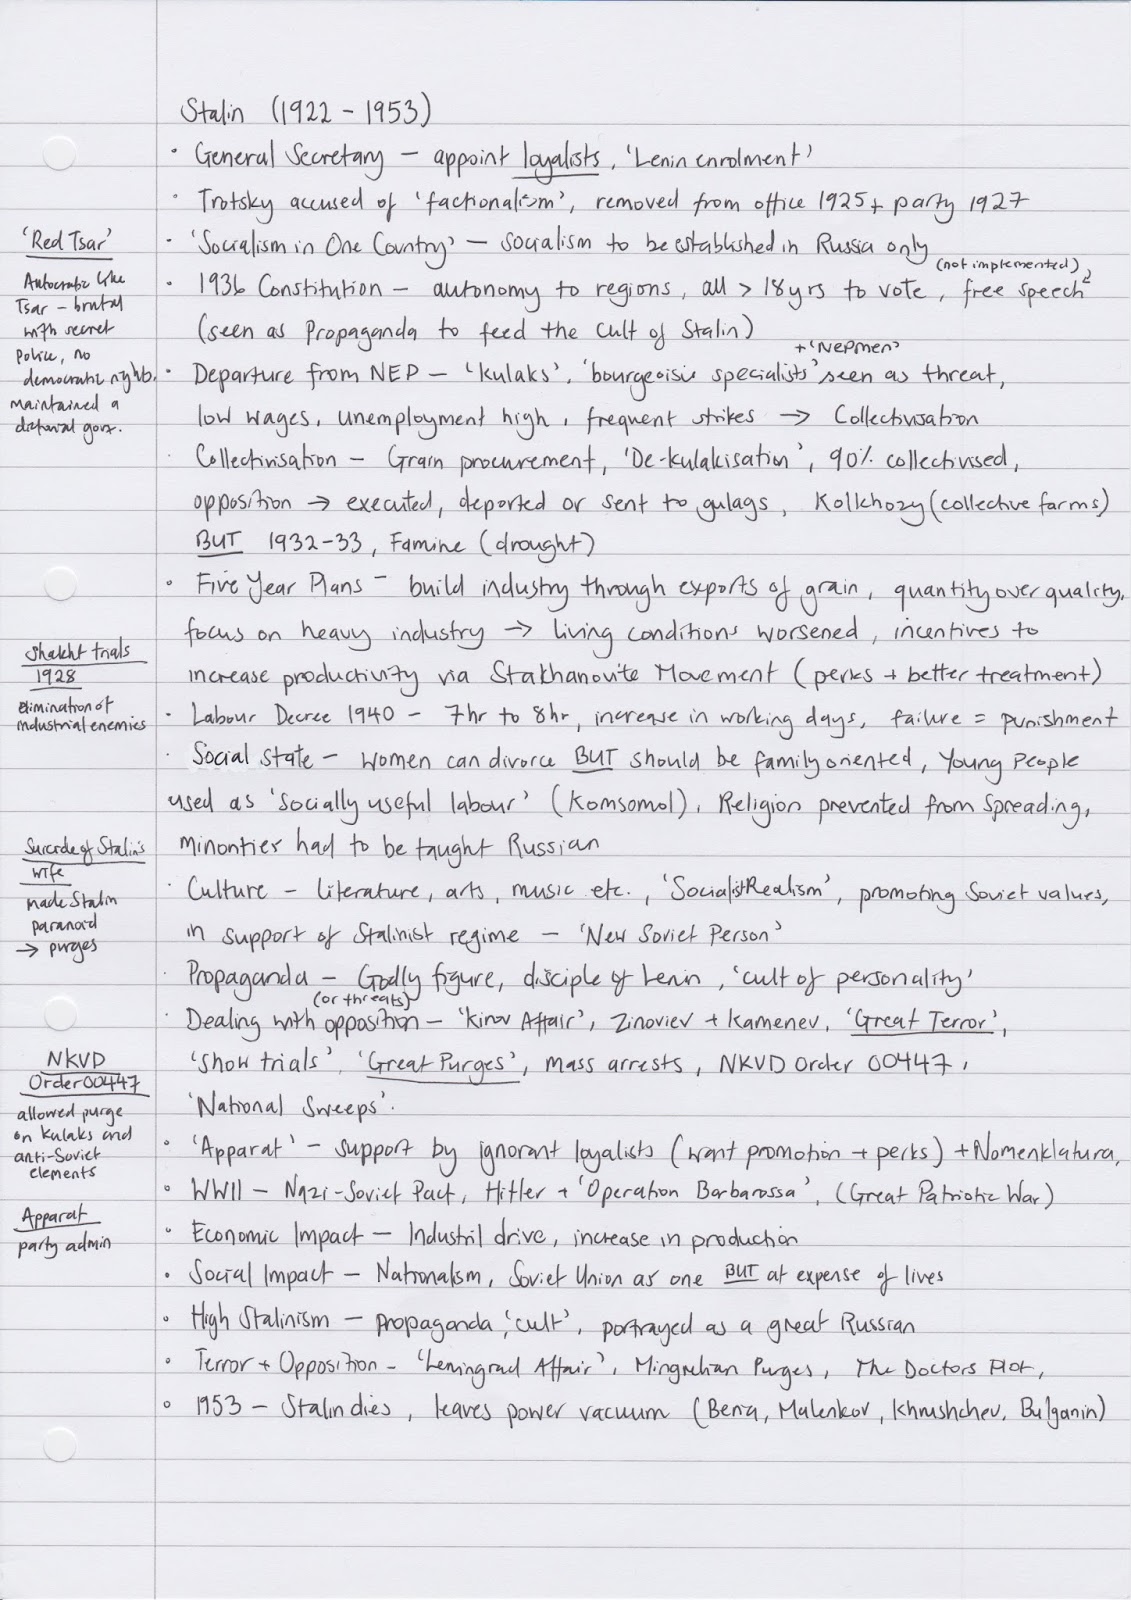 Stalin (1922 - 1953)
• General Secretary - appoint loyalists, 'Lenin enrolment'
• Trotsky accused of 'factionalism', removed from office 1925 + party 1927
'Red Tsar'
• 'Socialism in One Country' - socialism to be established in Russia only
(not implemented)
Autocratic like
Tsar - brutal
with secret
police, no
democratic rights,
maintained a
dictorial gov.
• 1936 Constitution - autonomy to regions, all > 18yrs to vote, free speech
(seen as Propaganda to feed the Cult of Stalin)
+ 'Nepmen'
• Departure from NEP - 'kulaks', 'bourgeoisie specialists' seen as threat,
low wages, unemployment high, frequent strikes → Collectivisation
• Collectivisation - Grain procurement, 'De-kulakisation', 90% collectivised,
opposition → executed, deported or sent to gulags, Kolkhozy (collective farms)
BUT 1932-33, Famine (drought)
• Five Year Plans - build industry through exports of grain, quantity over quality,
focus on heavy industry → living conditions worsened, incentives to
increase productivity via Stakhanovite Movement (perks + better treatment)
Shakht trials
1928
Elimination of
industrial enemies
• Labour Decree 1940 - 7hr to 8hr, increase in working days, failure = punishment
• Social State - women can divorce BUT should be family oriented, Young People
used as 'socially useful labour' (Komsomol), Religion prevented from spreading,
minorities had to be taught Russian
Suicide of Stalin's
wife
made Stalin
paranoid
→ purges
• Culture - literature, arts, music etc., 'Socialist Realism', promoting Soviet values,
in support of Stalinist regime - 'New Soviet Person'
• Propaganda - Godly figure, disciple of Lenin, 'cult of personality'
(or threats)
• Dealing with opposition - 'Kirov Affair', Zinoviev + Kamenev, 'Great Terror',
'Show trials', 'Great Purges', mass arrests, NKVD Order 00447,
'National Sweeps'.
NKVD
Order 00447
allowed purge
on kulaks and
anti-Soviet
elements
• 'Apparat' - support by ignorant loyalists (want promotion + perks) + Nomenklatura,
• WWII - Nazi-Soviet Pact, Hitler + 'Operation Barbarossa', (Great Patriotic War)
Apparat
party admin
• Economic Impact - Industril drive, increase in production
• Social Impact - Nationalism, Soviet Union as one BUT at expense of lives
• High Stalinism - propaganda, 'cult', portrayed as a great Russian
• Terror + Opposition - 'Leningrad Affair', Mingrelian Purges, The Doctors Plot,
• 1953 - Stalin dies, leaves power vacuum (Beria, Malenkov, Khrushchev, Bulganin)